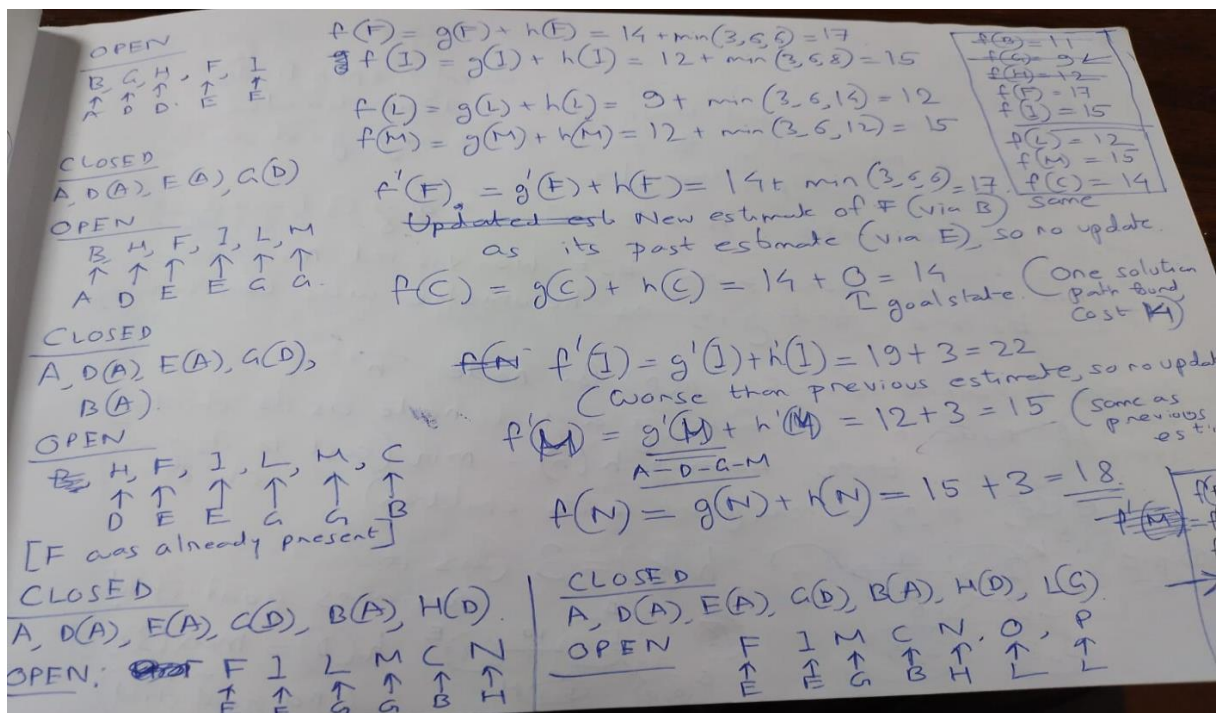 OPEN
B, G, H, F, I
↑ ↑ ↑ ↑ ↑
A D D. E E
CLOSED
A, D(A), E(A), G(D)
OPEN
B, H, F, I, L, M
↑ ↑ ↑ ↑ ↑ ↑
A D E E G G.
CLOSED
A, D(A), E(A), G(D),
B(A).
OPEN
H, F, I, L, M, C
↑ ↑ ↑ ↑ ↑ ↑
D E E G G B
[F was already present]
CLOSED
A, D(A), E(A), G(D), B(A), H(D)
OPEN: F I L M C N
↑ ↑ ↑ ↑ ↑ ↑
E E G G B H
f(F) = g(F) + h(F) = 14 + min(3,6,6) = 17
f(I) = g(I) + h(I) = 12 + min(3,6,8) = 15
f(L) = g(L) + h(L) = 9 + min(3,6,12) = 12
f(M) = g(M) + h(M) = 12 + min(3,6,12) = 15
f'(F) = g'(F) + h(F) = 14 + min(3,6,6) = 17.
Updated est New estimate of F (via B) same
as its past estimate (via E), so no update.
f(C) = g(C) + h(C) = 14 + 0 = 14
↑ goal state. (One solution
path found
cost 14)
f(N f'(I) = g'(I) + h'(I) = 19 + 3 = 22
(worse than previous estimate, so no updat
f'(M) = g'(M) + h'(M) = 12 + 3 = 15 (same as
previous
esti
A-D-G-M
f(N) = g(N) + h(N) = 15 + 3 = 18.
f'(M) = f
f(B) = 11
f(G) = 9
f(H) = 12
f(F) = 17
f(I) = 15
f(L) = 12
f(M) = 15
f(C) = 14
CLOSED
A, D(A), E(A), G(D), B(A), H(D), L(G).
OPEN F I M C N, O, P
↑ ↑ ↑ ↑ ↑ ↑ ↑
E E G B H L L